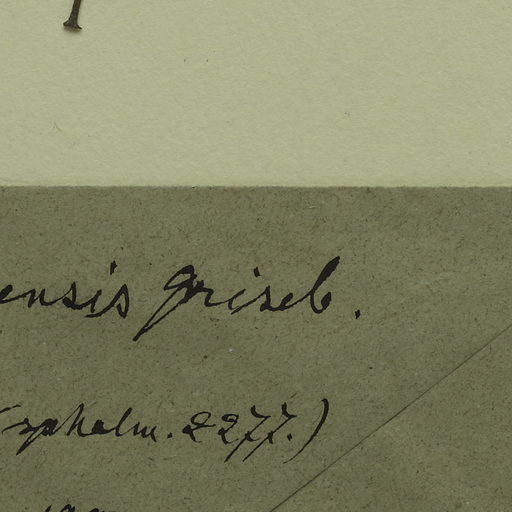 ensis Griseb.
(Ezpholm. 2277.)